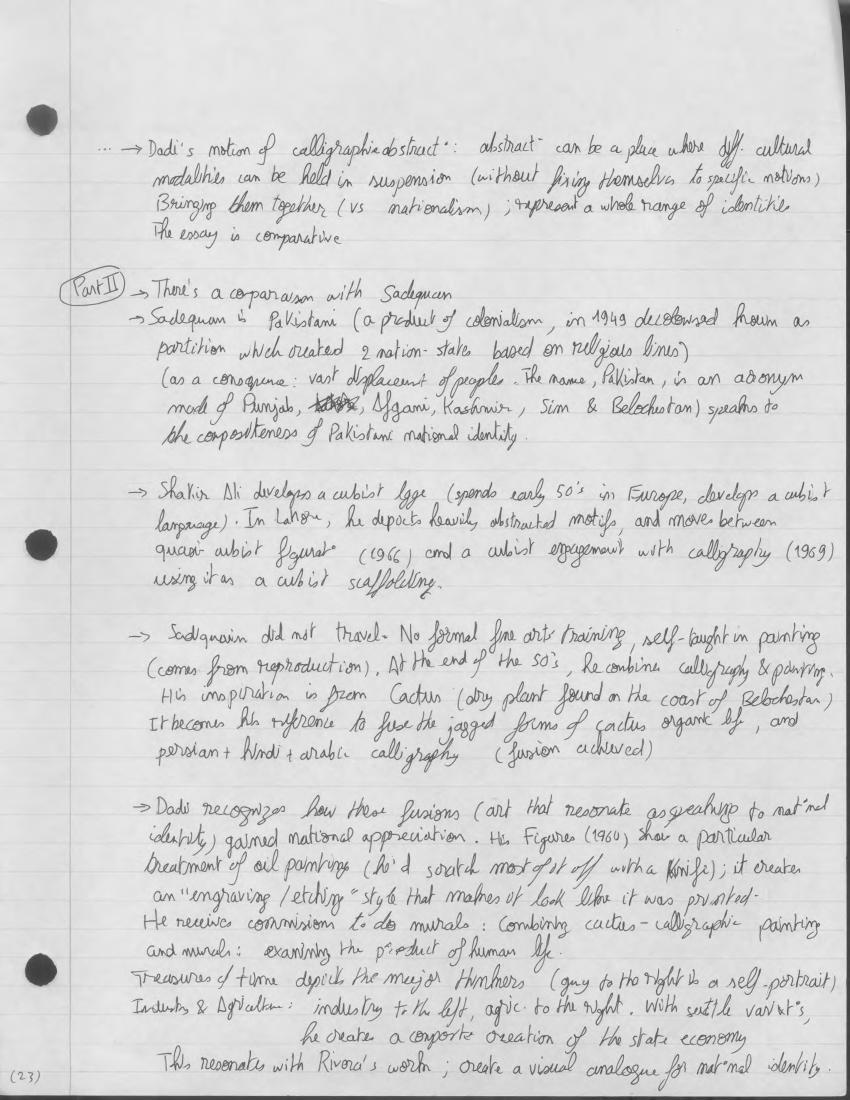 ... → Dadi's notion of calligraphic abstract°: abstract° can be a place where diff. cultural
modalities can be held in suspension (without fixing themselves to specific notions)
Bringing them together (vs nationalism) ; represent a whole range of identities
The essay is comparative
Part II → There's a comparison with Sadequan
→ Sadequan is Pakistani (a product of colonialism, in 1949 decolonised known as
partition which created 2 nation-states based on religious lines)
(as a consequence: vast displacement of peoples. The name, Pakistan, is an acronym
made of Punjab, , Afgani, Kashmir, Sim & Belochestan) speaks to
the compositeness of Pakistani national identity.
→ Shakir Ali develops a cubist lgge (spends early 50's in Europe, develops a cubist
language). In Lahore, he depicts heavily abstracted motifs, and moves between
quasi-cubist figurat° (1966) and a cubist engagement with calligraphy (1969)
using it as a cubist scaffolding.
→ Sadiquain did not travel. No formal fine arts training, self-taught in painting
(comes from reproduction). At the end of the 50's, he combines calligraphy & painting.
His inspiration is from Cactus (dry plant found on the coast of Belochestan)
It becomes his reference to fuse the jagged forms of cactus organic life, and
persian + hindi + arabic calligraphy (fusion achieved)
→ Dadi recognizes how these fusions (art that resonate as speaking to nat°nal
identity) gained national appreciation. His Figures (1960) show a particular
treatment of oil paintings (he'd scratch most of it off with a knife); it creates
an "engraving/etching" style that makes it look like it was printed.
He receives commisions to do murals: Combining cactus-calligraphic painting
and murals: examining the product of human life.
Treasures of time depicts the major thinkers (guy to the right is a self-portrait)
Industry & Agriculture: industry to the left, agric. to the right. With subtle variat°s,
he creates a composite creation of the state economy
This resonates with Rivera's work ; create a visual analogue for nat°nal identity.
(23)